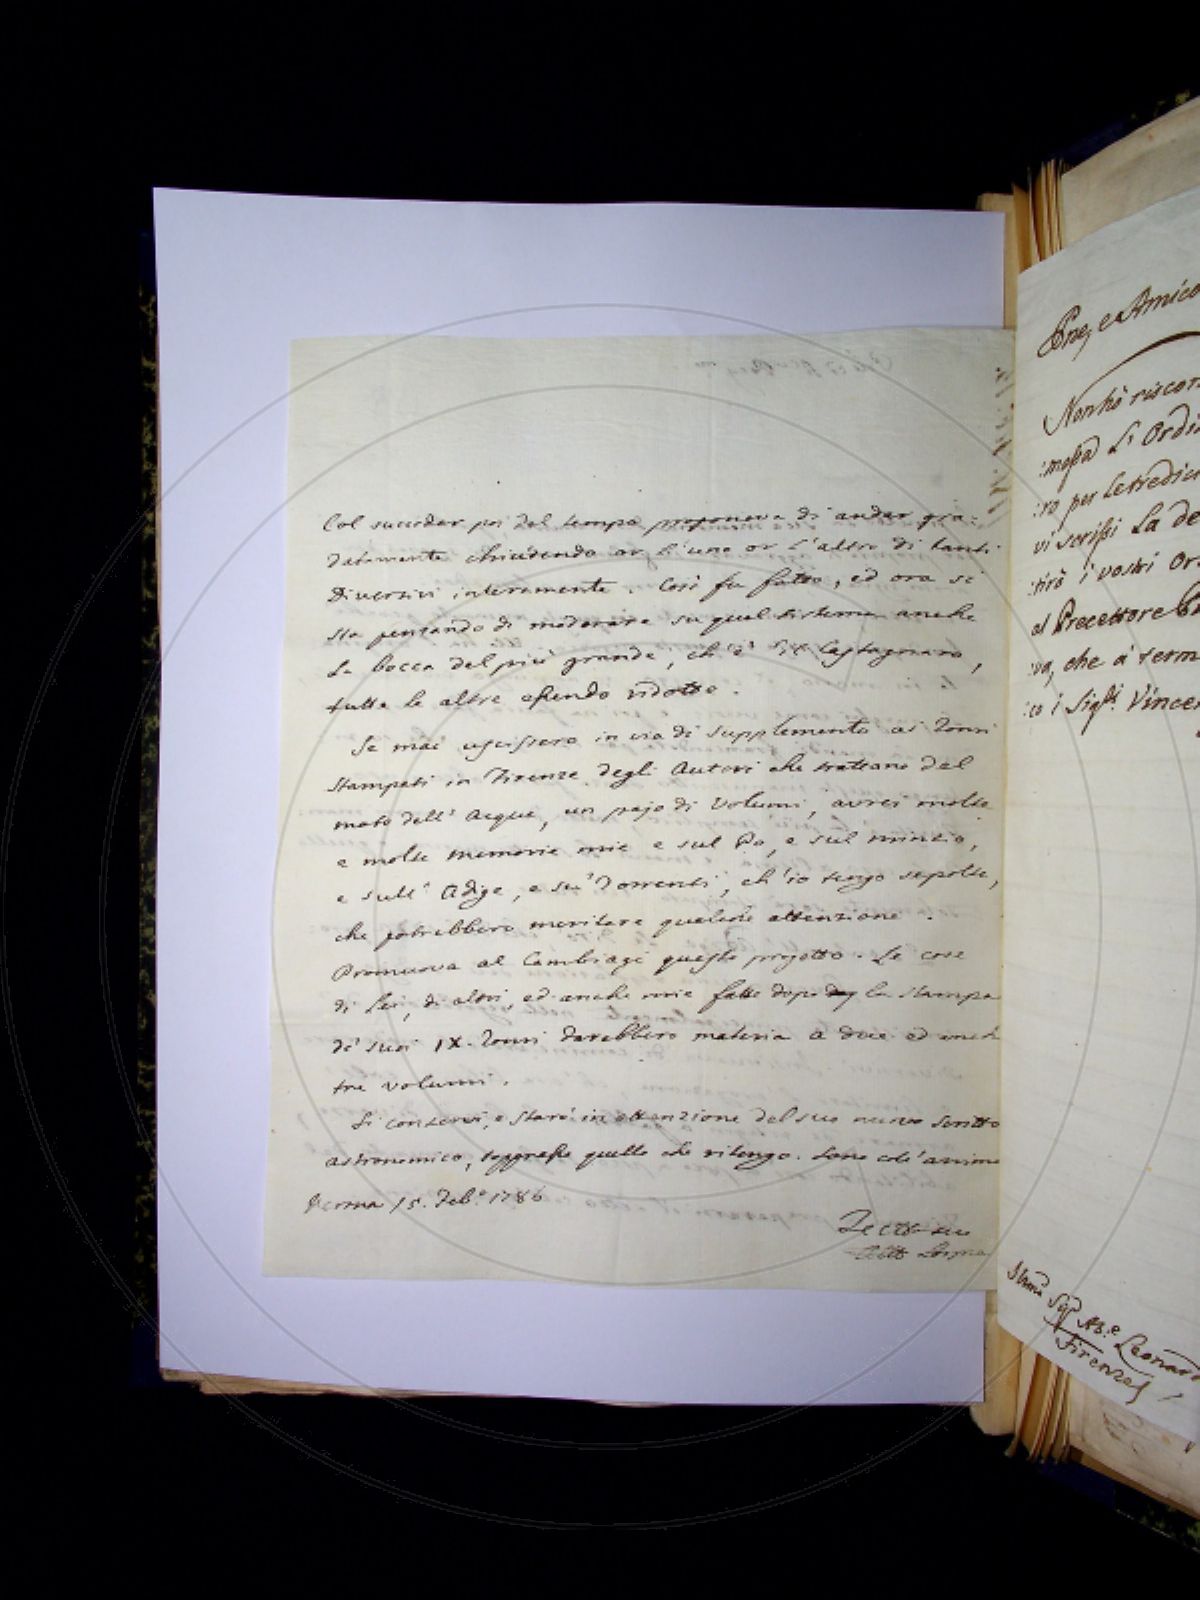 Col succeder poi del tempo proponeva di andar gra-
datamente chiudendo or l'uno or l'altro di tanti
diversivi interamente. Così fu fatto, ed ora si
sta pensando di moderare su quel sistema anche
la bocca del più grande, ch'è il Castagnaro,
tutte le altre essendo ridotte.
Se mai uscissero in via di supplemento ai Tomi
stampati in Firenze degli Autori che trattano del
moto dell'Acque, un pajo di Volumi, avrei molte
e molte memorie mie e sul Po, e sul Mincio,
e sull'Adige, e su' Torrenti, ch'io tengo sepolte,
che potrebbero meritare qualche attenzione.
Promuova al Cambiagi questo progetto. Le cose
di Lei, di altri, ed anche mie fatte dopo la stampa
de' suoi IX. Tomi darebbero materia a due ed anche
tre volumi.
Si conservi, e starò in attenzione del suo nuovo scritto
astronomico, soppresse quelle che ritengo. Sono coll'anima
Verona 15. Feb.º 1786
Tutto suo
Lorgna
Pne, e Amico
Non hò riscon
:messa Li Ordi
:ro per le tredici
vi scrissi La de
:tirà i vostri Or
al Precettore
:va, che à term
:co i Sig.ri Vincen
Sig.r Ab.e Leonar
Firenze